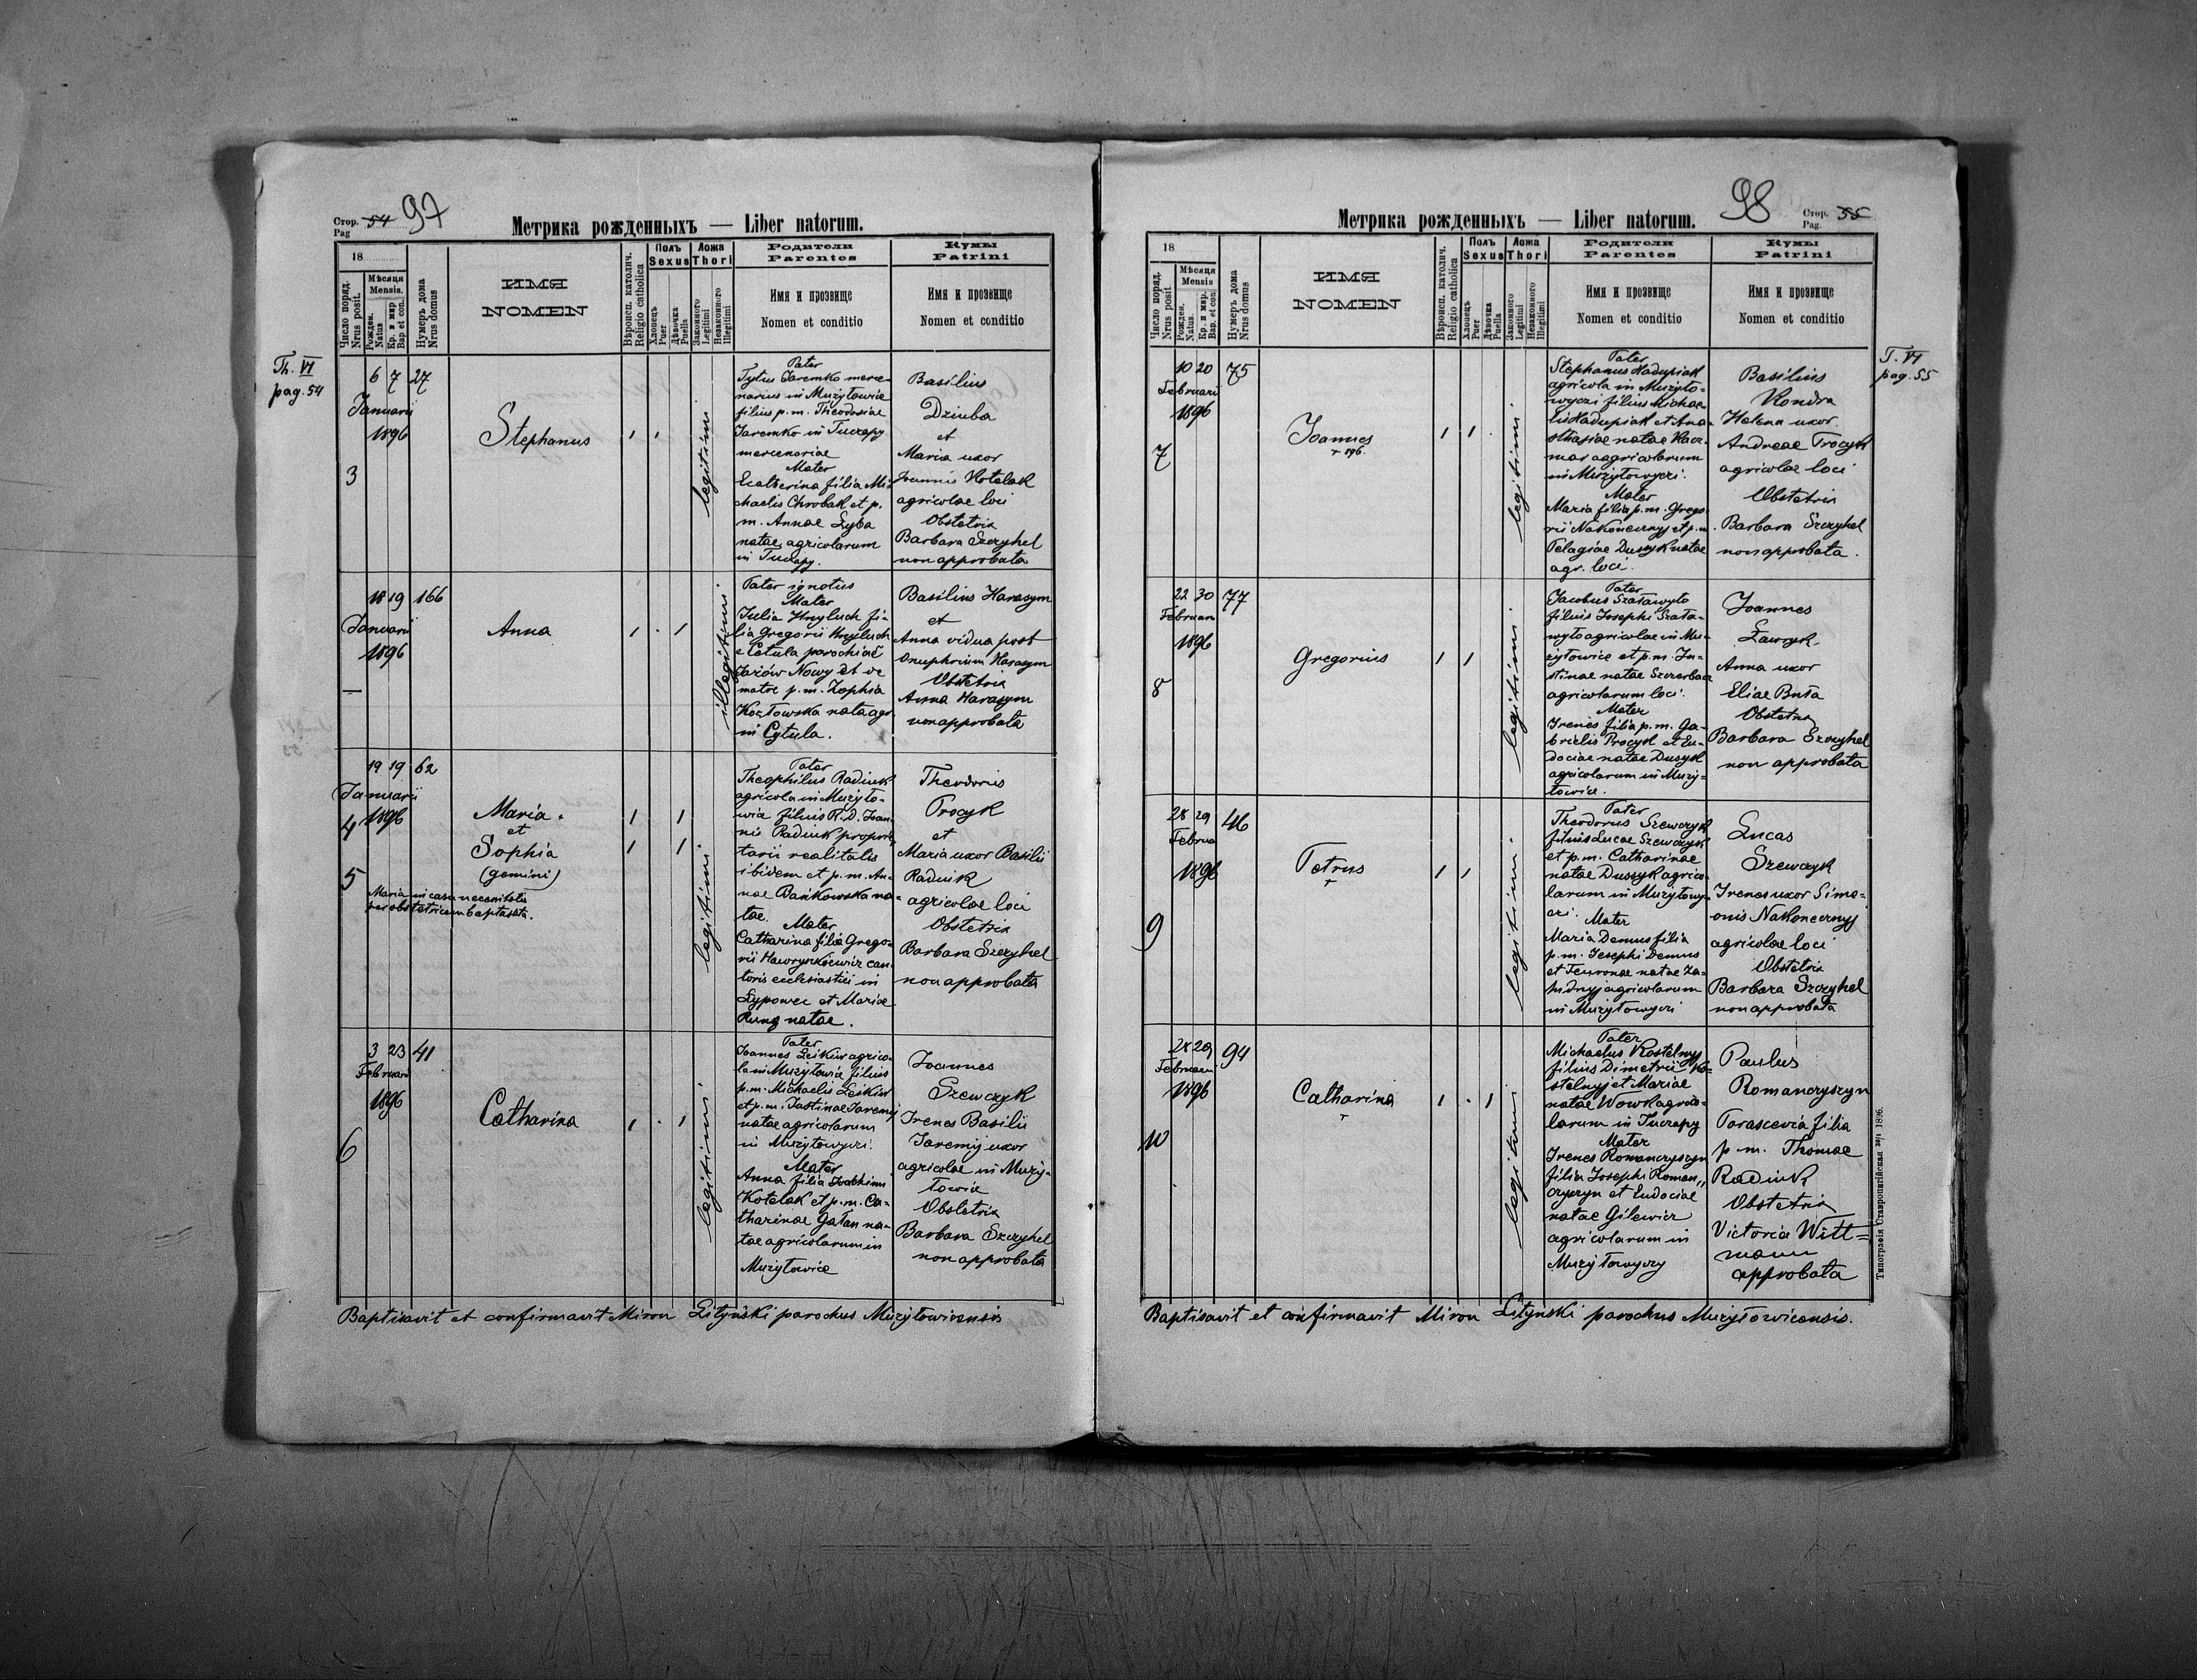 Стор. 54 97
Pag
Метрика рожденныхъ — Liber natorum.
18
Число поряд.
Nrus posit.
Мѣсяця
Mensis.
Рожден.
Natus
Кр. и мѵр
Bap et con.
Нумеръ дома
Nrus domus
ИМЯ
NOMEN
Вѣроисп. католич.
Religio catholica
Полъ
Sexus
Хлопецъ
Puer
Дѣвочка
Puella
Ложа
Thori
Законного
Legitimi
Незаконного
Illegitimi
Родители
Parentes
Имя и прозвище
Nomen et conditio
Кумы
Patrini
Имя и прозвище
Nomen et conditio
Th. VI
pag. 54
3
6 7 27
Januarii
1896
Stephanus
legitimi
Pater
Tytus Jaremko merce-
narius in Mużyłowice
filius p.m. Theodosiae
Jaremko in Tuczapy
mercenariae
Mater
Ecatherina filia Mi-
chaelis Chrobak et p.
m. Annae Zyba
natae, agricolarum
in Tuczapy.
Basilius
Dziuba
et
Maria uxor
Joannis Kotelak
agricolae loci
Obstetrix
Barbara Szczyhel
non approbata
18 19 166
Januarii
1896
—
Anna
illegitimi
Pater ignotus
Mater
Julia Hnyluch fi-
lia Gregorii Hnyluch
e Cetula parochiae
Jazów Nowy et de
matre p.m. Zophia
Kozłowska nata agr.
in Cytula.
Basilius Harasym
et
Anna vidua post
Onuphrium Harasym
Obstetrix
Anna Harasym
non approbata
19 19 62
Januarii
1896
4
5
Maria
et
Sophia
(gemini)
Maria in casu necessitatis
per obstetricem baptisata.
legitimi
Pater
Theophilus Radiuk
agricola in Mużyło-
wice filius R.D. Joan-
nis Radiuk proprie-
tarii realitatis
ibidem et p.m. An-
nae Bańkowska na-
tae.
Mater
Catharina filia Grego-
rii Hawryszkiewicz can-
toris ecclesiastici in
Lypowec et Mariae
Rung natae.
Theodoris
Procyk
et
Maria uxor Basilii
Radiuk
agricolae loci
Obstetrix
Barbara Szczyhel
non approbata
3 23 41
Februarii
1896
6
Catharina
legitimi
Pater
Joannes Leśkiw agrico-
la in Mużyłowice filius
p.m. Michaelis Leśkiw
et p.m. Justinae Jaremij
natae agricolarum
in Mużyłowyczi.
Mater
Anna filia Joachimi
Kotelak et p.m. Ca-
tharinae Gałan na-
tae agricolarum in
Mużyłowice
Joannes
Szewczyk
Irenes Basilii
Jaremij uxor
agricolae in Muży-
łowice
Obstetrix
Barbara Szczyhel
non approbata
Baptisavit et confirmavit Miron Lityński parochus Mużyłowicensis
Метрика рожденныхъ — Liber natorum.
98 Стор. 55
Pag.
18
Число поряд.
Nrus posit.
Мѣсяця
Mensis
Рожден.
Natus.
Кр. и мѵр.
Bap. et con
Нумеръ дома
Nrus domus
ИМЯ
NOMEN
Вѣроисп. католич.
Religio catholica
Полъ
Sexus
Хлопецъ
Puer
Дѣвочка
Puella
Ложа
Thori
Законного
Legitimi
Незаконного
Illegitimi
Родители
Parentes
Имя и прозвище
Nomen et conditio
Кумы
Patrini
Имя и прозвище
Nomen et conditio
T. VI
pag. 55
10 20 75
Februarii
1896
7
Joannes
+ 896.
legitimi
Pater
Stephanus Hadupiak
agricola in Mużyło-
wyczi filius Michae-
lis Hadupiak et Ana-
sthasiae natae Kacz-
mar agricolarum
in Mużyłowyczi.
Mater
Maria filia p.m. Grego-
rii Nakonecznyj et p.m.
Pelagiae Dussyk natae
agr. loci.
Basilius
Kondra
Helena uxor
Andreae Procyk
agricolae loci
Obstetrix
Barbara Szczyhel
non approbata.
22 30 77
Februarii
1896
8
Gregorius
legitimi
Pater
Jacobus Szaławyło
filius Josephi Szała-
wyło agricolae in Mu-
żyłowice et p.m. Ju-
stinae natae Szczerbac
agricolarum loci.
Mater
Irenes filia p.m. Ga-
brielis Procyk et Eu-
dociae natae Dusyk
agricolarum in Muży-
łowice.
Joannes
Ławryk
Anna uxor
Eliae Buła
Obstetrix
Barbara Szczyhel
non approbata
28 29 46
Februa
1896
9
Petrus
+
legitimi
Pater
Theodorus Szewczyk
filius Lucae Szewczyk
et p.m. Catharinae
natae Dussyk agrico-
larum in Mużyłowy-
czi.
Mater
Maria Demus filia
p.m. Josephi Demus
et Fewronae natae Za-
hidnyj agricolarum
in Mużyłowyczi
Lucas
Szewczyk
Irenes uxor Sime-
onis Nakonecznyj
agricolae loci
Obstetrix
Barbara Szczyhel
non approbata
28 29 94
Februarii
1896
10
Catharina
+
legitimi
Pater
Michaelus Kostelnyj
filius Dimetrii Ko-
stelnyj et Mariae
natae Wowk agrico-
larum in Tuczapy
Mater
Irenes Romanczyszyn
filia Josephi Roman-
czyszyn et Eudociae
natae Gilewicz
agricolarum in
Mużyłowyczy
Paulus
Romanczyszyn
Parascevia filia
p.m. Thomae
Radiuk
Obstetrix
Victoria Witt-
mann
approbata
Baptisavit et confirmavit Miron Lityński parochus Mużyłowicensis.
Типографія Ставропигійская 1896.